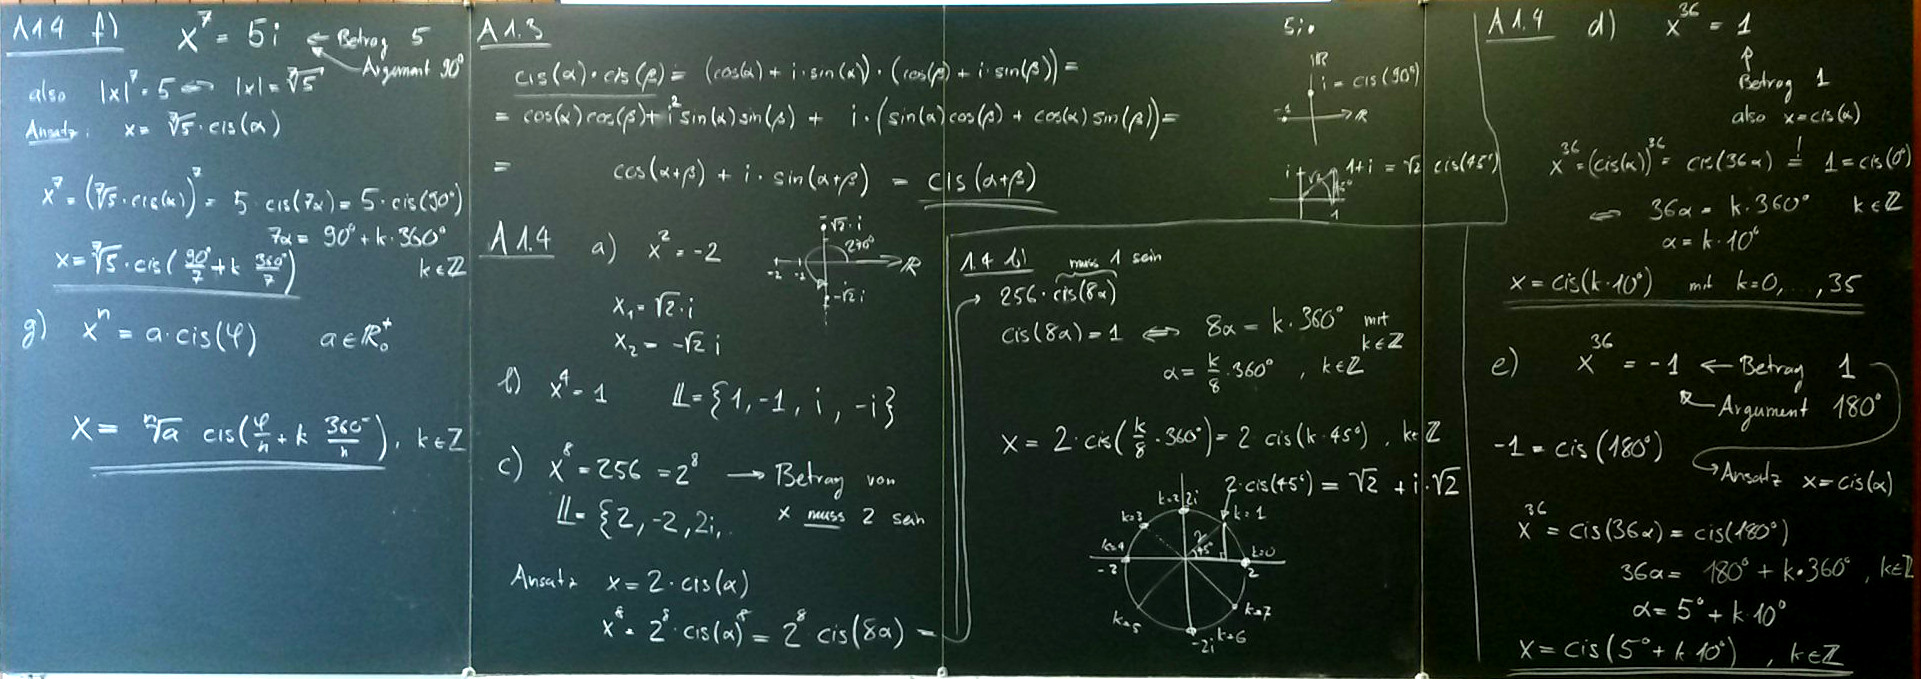 A1.4 f) x⁷ = 5i ← Betrag 5
Argument 90°
also |x|⁷ = 5 ⇔ |x| = ⁷√5
Ansatz: x = ⁷√5 · cis(α)
x⁷ = (⁷√5 · cis(α))⁷ = 5 · cis(7α) = 5 · cis(90°)
7α = 90° + k·360°
x = ⁷√5 · cis(90°/7 + k 360°/7) k∈ℤ
g) xⁿ = a·cis(φ) a∈ℝ₀⁺
x = ⁿ√a cis(φ/n + k 360°/n), k∈ℤ
A1.3
cis(α)·cis(β) = (cos(α) + i·sin(α)) · (cos(β) + i·sin(β)) =
= cos(α)cos(β) + i² sin(α)sin(β) + i·(sin(α)cos(β) + cos(α)sin(β)) =
= cos(α+β) + i·sin(α+β) = cis(α+β)
5i
ℝ
i = cis(90°)
-1 ℝ
i √2 1+i = √2 cis(45°)
45°
1
A1.4 a) x² = -2
x₁ = √2·i
x₂ = -√2 i
√2·i
270°
-2 -1 ℝ
-√2 i
b) x⁴ = 1 𝕃 = {1, -1, i, -i}
c) x⁸ = 256 = 2⁸ → Betrag von
x muss 2 sein
𝕃 = {2, -2, 2i,
Ansatz x = 2·cis(α)
x⁸ = 2⁸·cis(α)⁸ = 2⁸ cis(8α) =
1.4 b) muss 1 sein
256·cis(8α)
cis(8α) = 1 ⇔ 8α = k·360° mit
k∈ℤ
α = k/8 ·360°, k∈ℤ
x = 2·cis(k/8 ·360°) = 2 cis(k·45°), k∈ℤ
2·cis(45°) = √2 + i·√2
k=2 2i
k=1
k=3
2
45°
k=4 k=0
-2 2
k=5 k=7
-2i k=6
A1.4 d) x³⁶ = 1
Betrag 1
also x=cis(α)
x³⁶ = (cis(α))³⁶ = cis(36α) =! 1 = cis(0°)
⇔ 36α = k·360° k∈ℤ
α = k·10°
x = cis(k·10°) mit k=0,...,35
e) x³⁶ = -1 ← Betrag 1
Argument 180°
-1 = cis(180°)
Ansatz x = cis(α)
x³⁶ = cis(36α) = cis(180°)
36α = 180° + k·360°, k∈ℤ
α = 5° + k·10°
x = cis(5° + k·10°), k∈ℤ